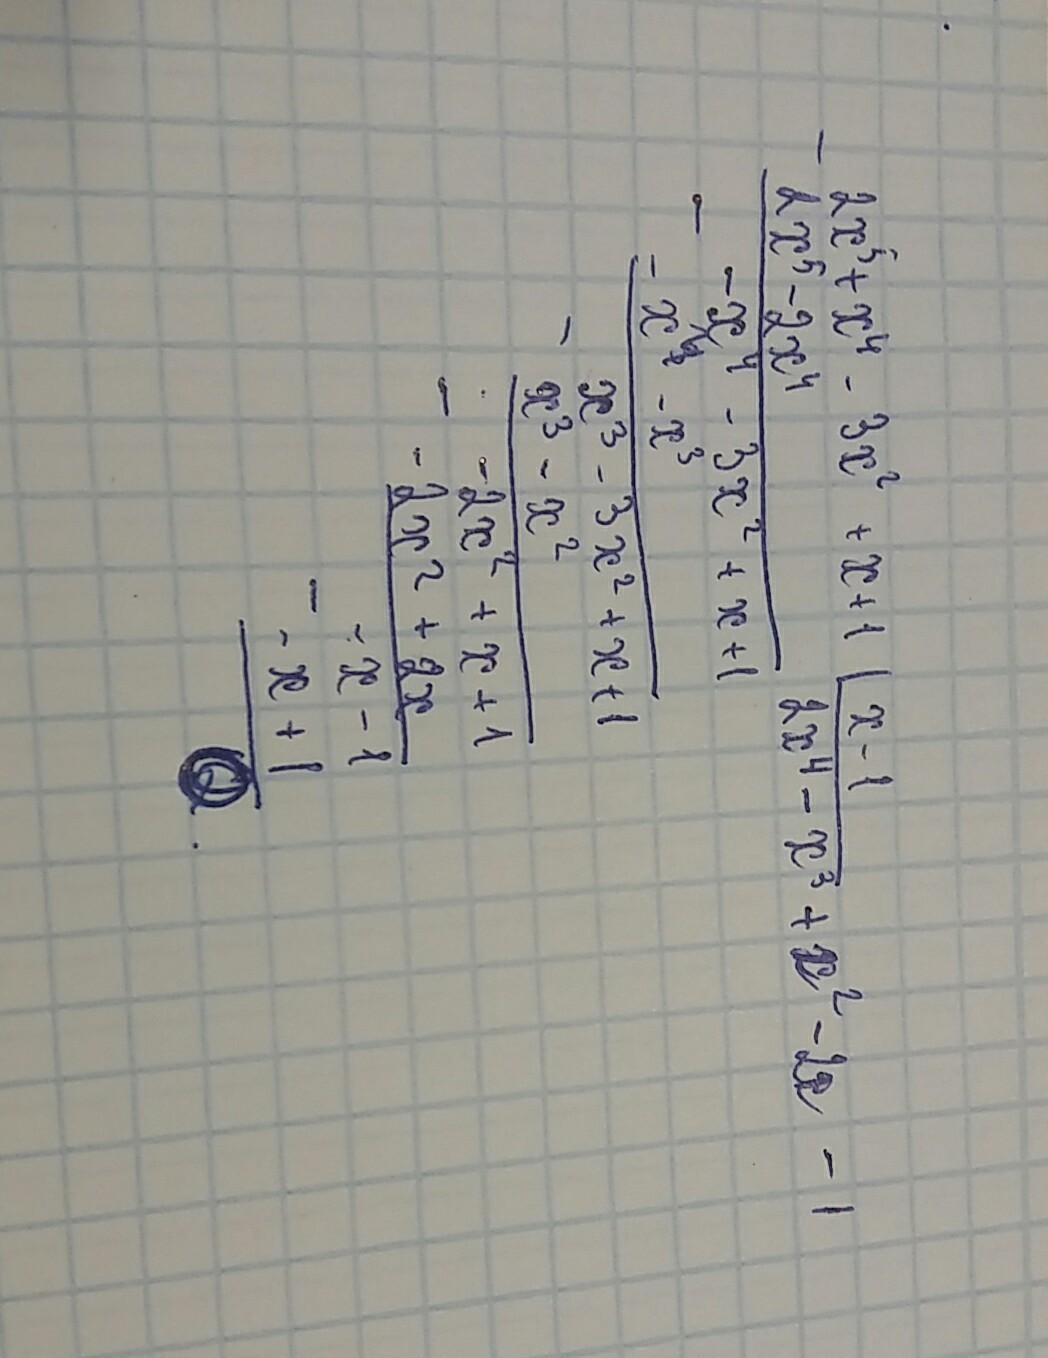 - 2x⁵ + x⁴ - 3x² + x + 1 | x - 1
2x⁵ - 2x⁴ 2x⁴ - x³ + x² - 2x - 1
- - x⁴ - 3x² + x + 1
- x⁴ - x³
- x³ - 3x² + x + 1
x³ - x²
- - 2x² + x + 1
- 2x² + 2x
- - x - 1
- x + 1
0